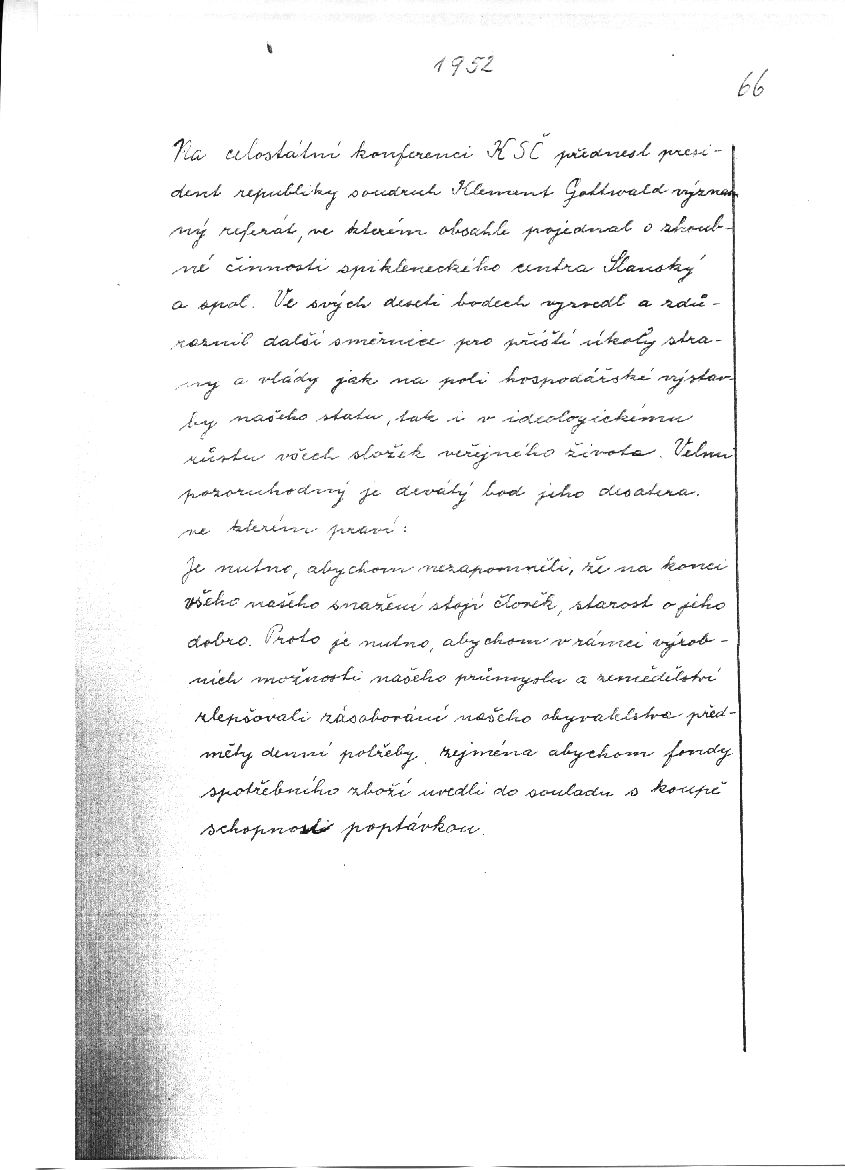 1952
66
Na celostátní konferenci KSČ přednesl presi-
dent republiky soudruh Klement Gottwald význam
ný referát, ve kterém obsáhle pojednal o zhoub-
né činnosti spikleneckého centra Slánský
a spol. Ve svých deseti bodech vyzvedl a zdů-
raznil další směrnice pro příští úkoly stra-
ny a vlády jak na poli hospodářské výstav-
by našeho statu, tak i v ideologickému
růstu všech složek veřejného života. Velmi
pozoruhodný je devátý bod jeho desatera.
ve kterém praví:
Je nutno, abychom nezapomněli, že na konci
všeho našeho snažení stojí člověk, starost o jeho
dobro. Proto je nutno, abychom v rámci výrob-
ních možností našeho průmyslu a zemědělství
zlepšovali zásobování našeho obyvatelstva před-
měty denní potřeby, zejména abychom fondy
spotřebního zboží uvedli do souladu s koupě
schopností poptávkou.